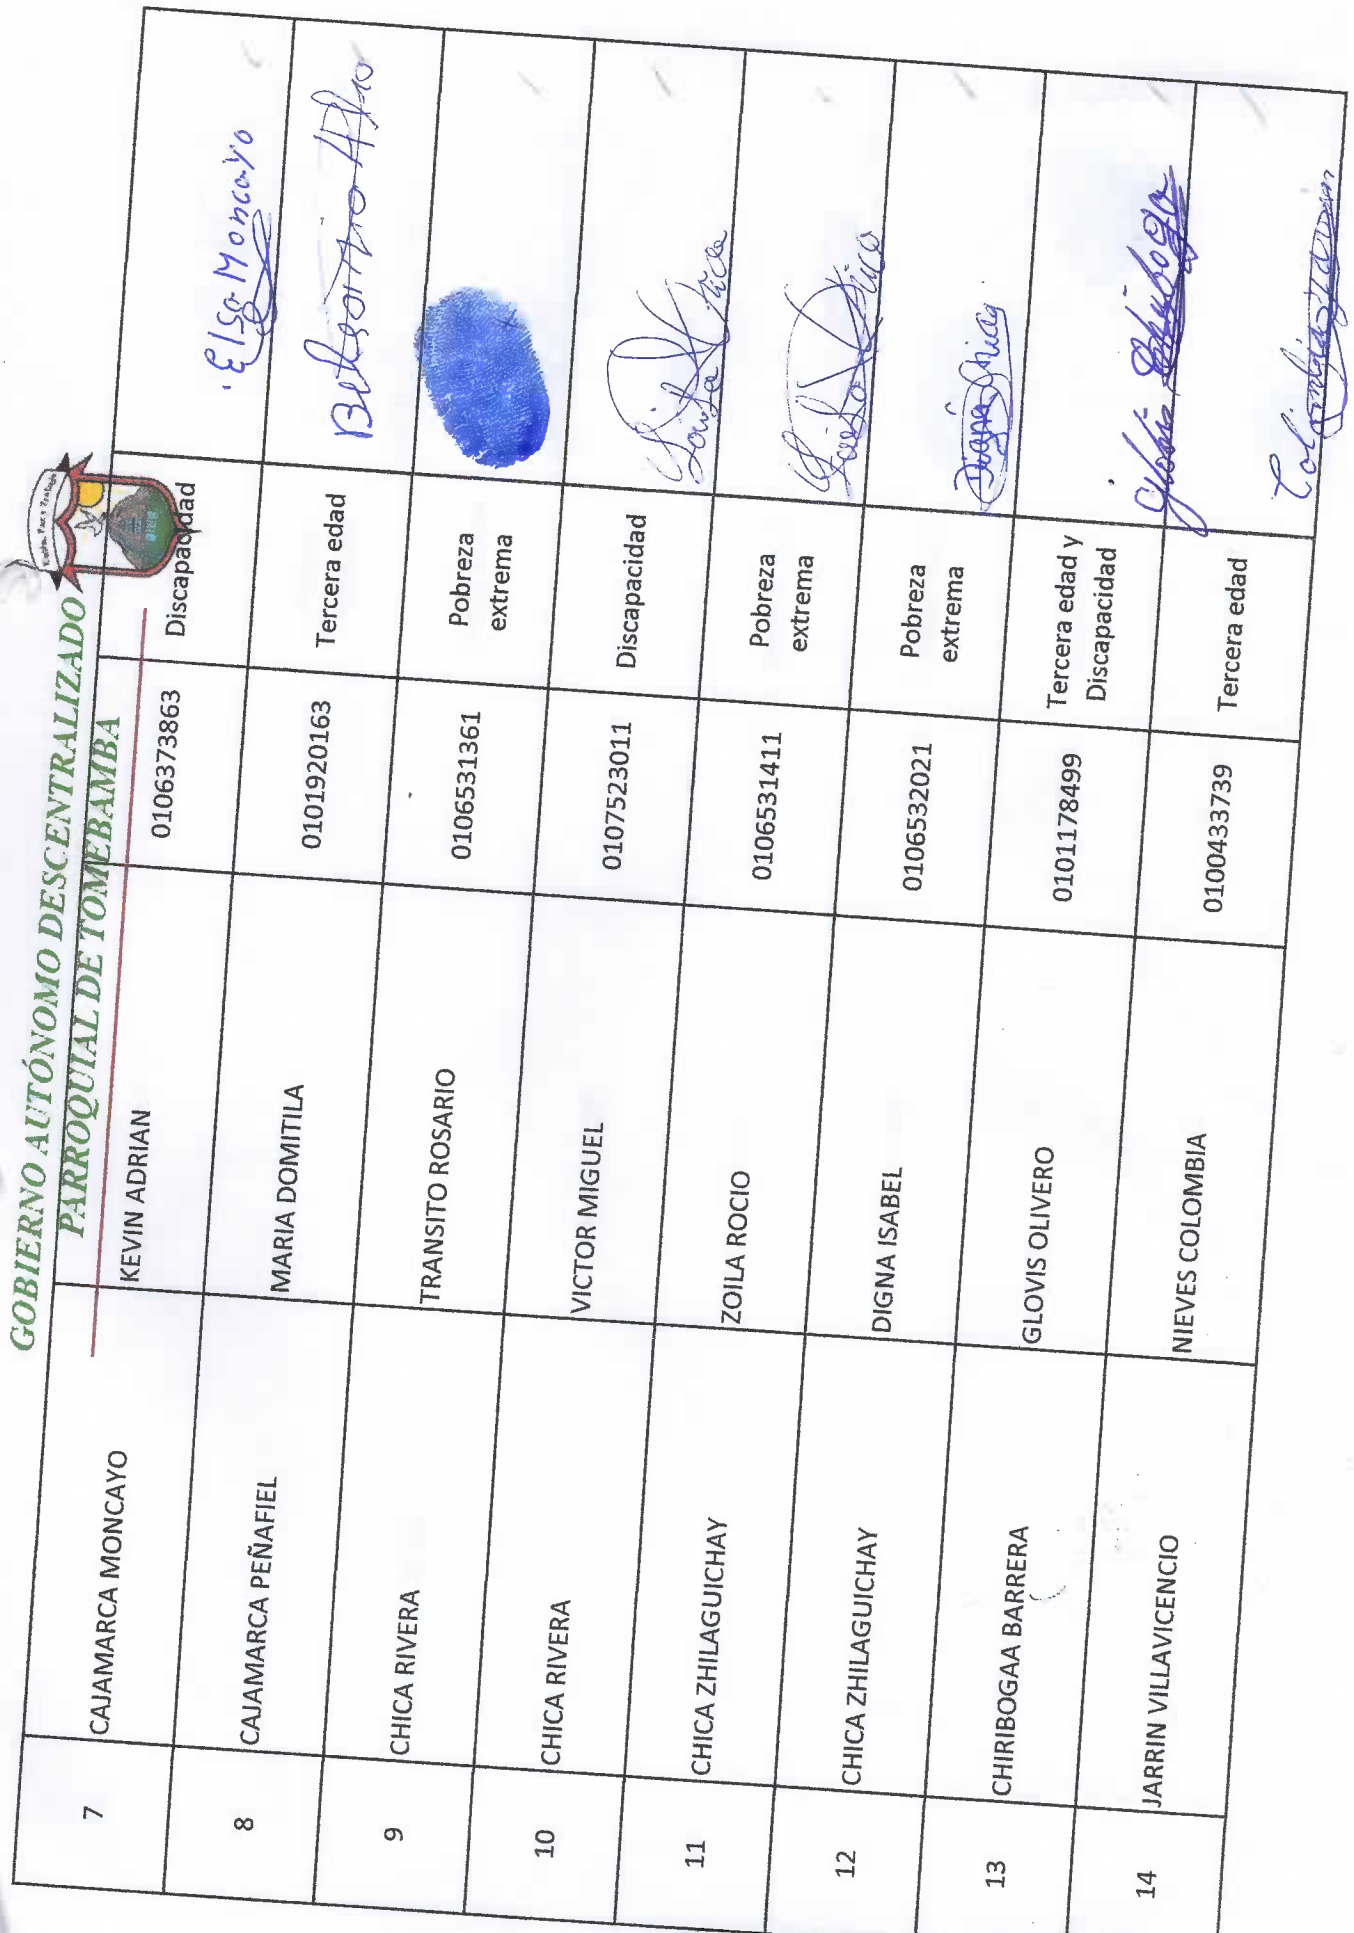 GOBIERNO AUTÓNOMO DESCENTRALIZADO
PARROQUIAL DE TOMEBAMBA
7 CAJAMARCA MONCAYO KEVIN ADRIAN 0106373863 Discapacidad Elsa Moncayo
8 CAJAMARCA PEÑAFIEL MARIA DOMITILA 0101920163 Tercera edad
9 CHICA RIVERA TRANSITO ROSARIO 0106531361 Pobreza
extrema
10 CHICA RIVERA VICTOR MIGUEL 0107523011 Discapacidad
11 CHICA ZHILAGUICHAY ZOILA ROCIO 0106531411 Pobreza
extrema
12 CHICA ZHILAGUICHAY DIGNA ISABEL 0106532021 Pobreza
extrema
13 CHIRIBOGAA BARRERA GLOVIS OLIVERO 0101178499 Tercera edad y
Discapacidad
14 JARRIN VILLAVICENCIO NIEVES COLOMBIA 0100433739 Tercera edad